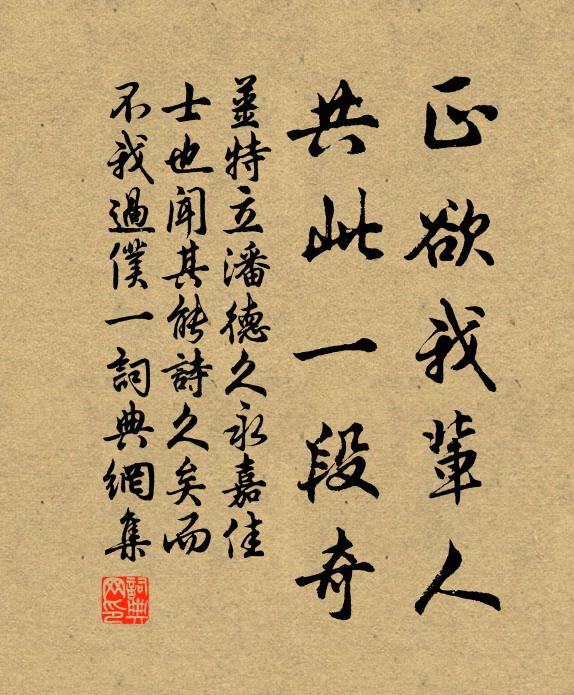 正欲我輩人
共此一段奇
姜特立潘德久永嘉佳
士也聞其能詩久矣而
不我過僕一詞典網集
詞典网印